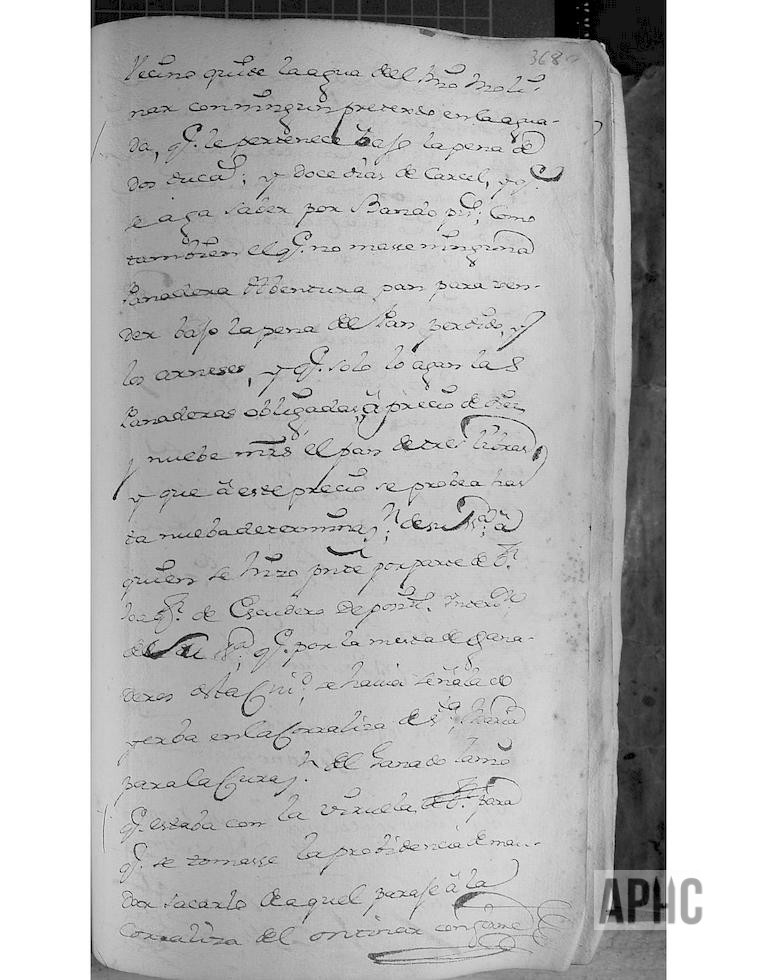 368
Vecino quite la agua del Mro Moli-
nar con ningun pretexto en la agua-
da, q.e le pertenece bajo la pena de
dos ducas; y doce dias de Carcel, y q.e
se aga saber por Bando pu.co; Como
tambien el q.e no masse ninguna
Panadera Abentura pan para ven-
der bajo la pena del Pan perdido, y
los arneses, y q.e solo lo agan las
Panaderas obligadas, â precio de diez
y nuebe mrs el pan de tres libras,
y que â este precio se probea has
ta nueba determinaz.n de su S.ria â
quien se hizo pnte por parte de D.n
Joaq.n de Escudero Deposit.o Interino
de Su S.ria q.e por la mesta de Gana-
deros desta Ciud. se havia señalado
yerba en la Corraliza de S.ta Maria
para la Curaz.n del Ganado lanio
q.e estaba con la viruela para
q.e se tomasse la probidencia de man-
dar sacarlo de aquel paraje â la
Corraliza del ontinar conforme
APHC